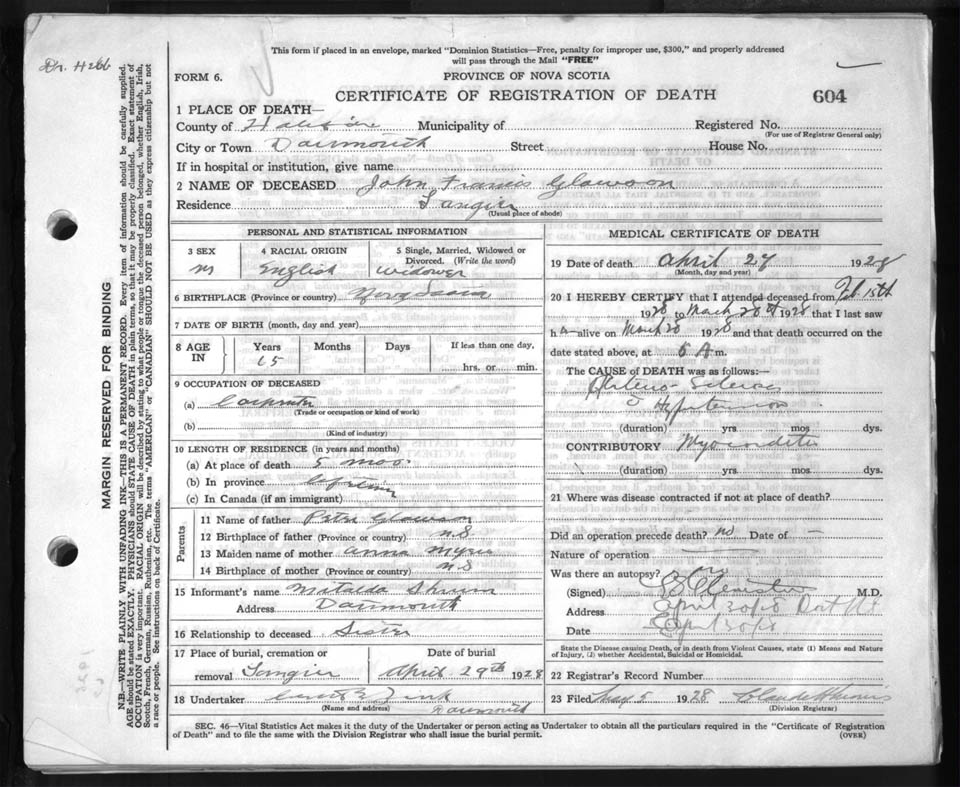 This form if placed in an envelope, marked "Dominion Statistics—Free, penalty for improper use, $300," and properly addressed
will pass through the Mail "FREE"
FORM 6.
PROVINCE OF NOVA SCOTIA
CERTIFICATE OF REGISTRATION OF DEATH
604
1 PLACE OF DEATH—
County of Municipality of Registered No.
(For use of Registrar General only)
City or Town Dartmouth Street House No.
If in hospital or institution, give name
2 NAME OF DECEASED John Francis Glawson
Residence Tangier
(Usual place of abode)
PERSONAL AND STATISTICAL INFORMATION
3 SEX
M
4 RACIAL ORIGIN
English
5 Single, Married, Widowed or
Divorced. (Write the word)
Widower
6 BIRTHPLACE (Province or country) Nova Scotia
7 DATE OF BIRTH (month, day and year)
8 AGE
IN
Years
65
Months
Days
If less than one day,
hrs. or min.
9 OCCUPATION OF DECEASED
(a) Carpenter
(Trade or occupation or kind of work)
(b)
(Kind of industry)
10 LENGTH OF RESIDENCE (in years and months)
(a) At place of death 5 mos.
(b) In province
(c) In Canada (if an immigrant)
Parents
11 Name of father Peter Glawson
12 Birthplace of father (Province or country) N.S
13 Maiden name of mother Anna
14 Birthplace of mother (Province or country) N.S
15 Informant's name Matilda
Address Dartmouth
16 Relationship to deceased Sister
17 Place of burial, cremation or
removal Tangier
Date of burial
April 29th 1928
18 Undertaker
(Name and address) Dartmouth
MEDICAL CERTIFICATE OF DEATH
19 Date of death April 27 1928
(Month, day and year)
20 I HEREBY CERTIFY that I attended deceased from Feb 15th
1928 to March 20th 1928 that I last saw
h alive on March 20 1928 and that death occurred on the
date stated above, at 5 A m.
The CAUSE of DEATH was as follows:—
Arterio-Sclerosis
(duration) yrs. mos. dys.
CONTRIBUTORY Myocarditis
(duration) yrs. mos. dys.
21 Where was disease contracted if not at place of death?
Did an operation precede death? no Date of —
Nature of operation
Was there an autopsy? no
(Signed) M.D.
Address April 30/28
Date April 30/28
State the Disease causing Death, or in death from Violent Causes, state (1) Means and Nature
of Injury, (2) whether Accidental, Suicidal or Homicidal.
22 Registrar's Record Number
23 Filed May 5 1928
(Division Registrar)
SEC. 46—Vital Statistics Act makes it the duty of the Undertaker or person acting as Undertaker to obtain all the particulars required in the "Certificate of Registration
of Death" and to file the same with the Division Registrar who shall issue the burial permit.
(OVER)
Dr. Hebb
MARGIN RESERVED FOR BINDING
N.B.—WRITE PLAINLY WITH UNFADING INK—THIS IS A PERMANENT RECORD. Every item of information should be carefully supplied.
AGE should be stated EXACTLY. PHYSICIANS should STATE CAUSE OF DEATH in plain terms, so that it may be properly classified. Exact statement of
OCCUPATION is very important. RACIAL ORIGIN will be described by stating to what people or tongue the deceased person belonged, whether English, Irish,
Scotch, French, German, Russian, Ruthenian, etc. The terms "AMERICAN" or "CANADIAN" SHOULD NOT BE USED as they express citizenship but not
a race or people. See instructions on back of Certificate.